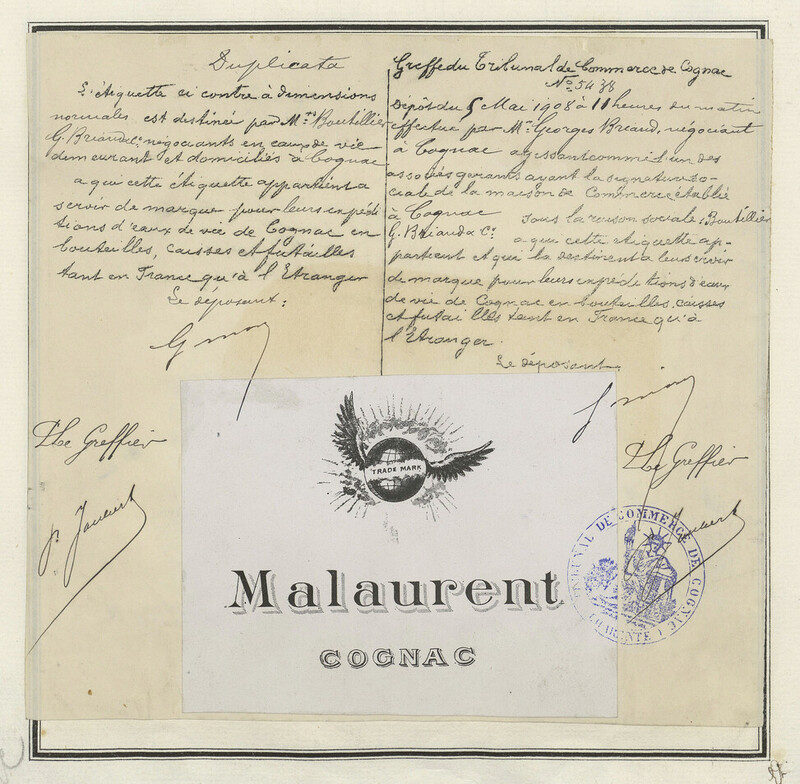 Duplicata
L'étiquette ci contre à dimensions
normales est destinée par Mrs Boutillier
G. Briand & Co négociants en eaux de vie
demeurant et domiciliés à Cognac
a qui cette étiquette appartient a
servir de marque pour leurs expédi
tions d'eaux de vie de Cognac en
bouteilles, caisses et futailles
tant en France qu'à l'Etranger
Le déposant:
P le Greffier
Greffe du Tribunal de Commerce de Cognac
No 5438
Dépôt du 5 Mai 1908 à 11 heures du matin
effectué par Mr Georges Briand, négociant
à Cognac agissant comme l'un des
associés gérants ayant la signature so-
ciale de la maison de Commerce établie
à Cognac sous la raison sociale: Boutillier
G. Briand & Co a qui cette étiquette ap-
partient et qui la destinent a leur servir
de marque pour leurs expéditions d'eaux
de vie de Cognac en bouteilles, caisses
et futailles tant en France qu'à
l'Etranger.
Le déposant.
P le Greffier
TRADE MARK
Malaurent
COGNAC
TRIBUNAL DE COMMERCE DE COGNAC
CHARENTE